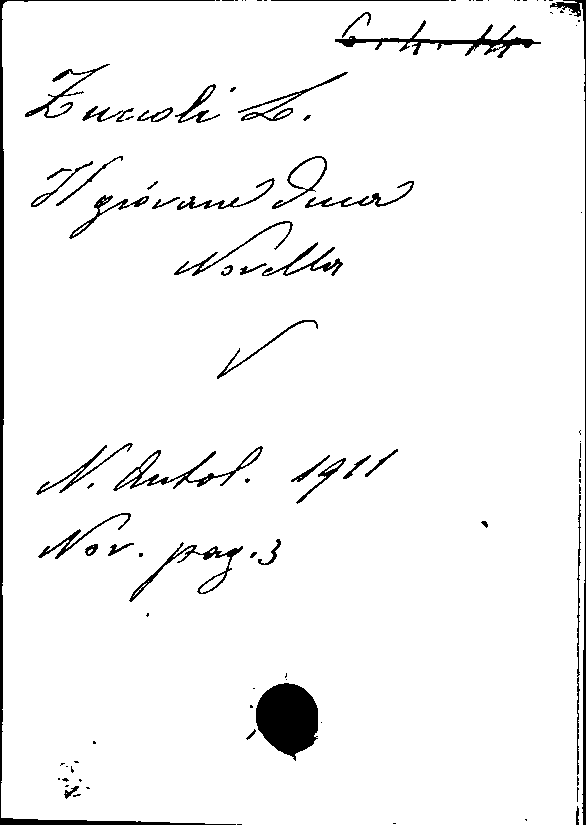 6.4.14
Zuccoli L.
Il giovane duca
Novella
N. Antol. 1911
Nov. pag. 3